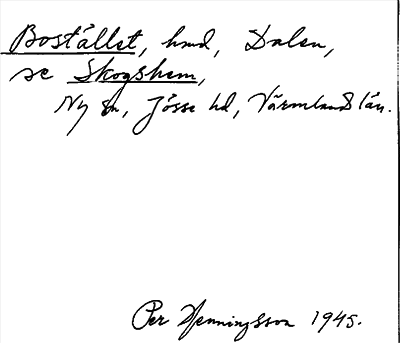 Bostället, hmd, Dalen,
se Skogshem,
Ny sn, Jösse hd, Värmlands län.
Per Henningsson 1945.